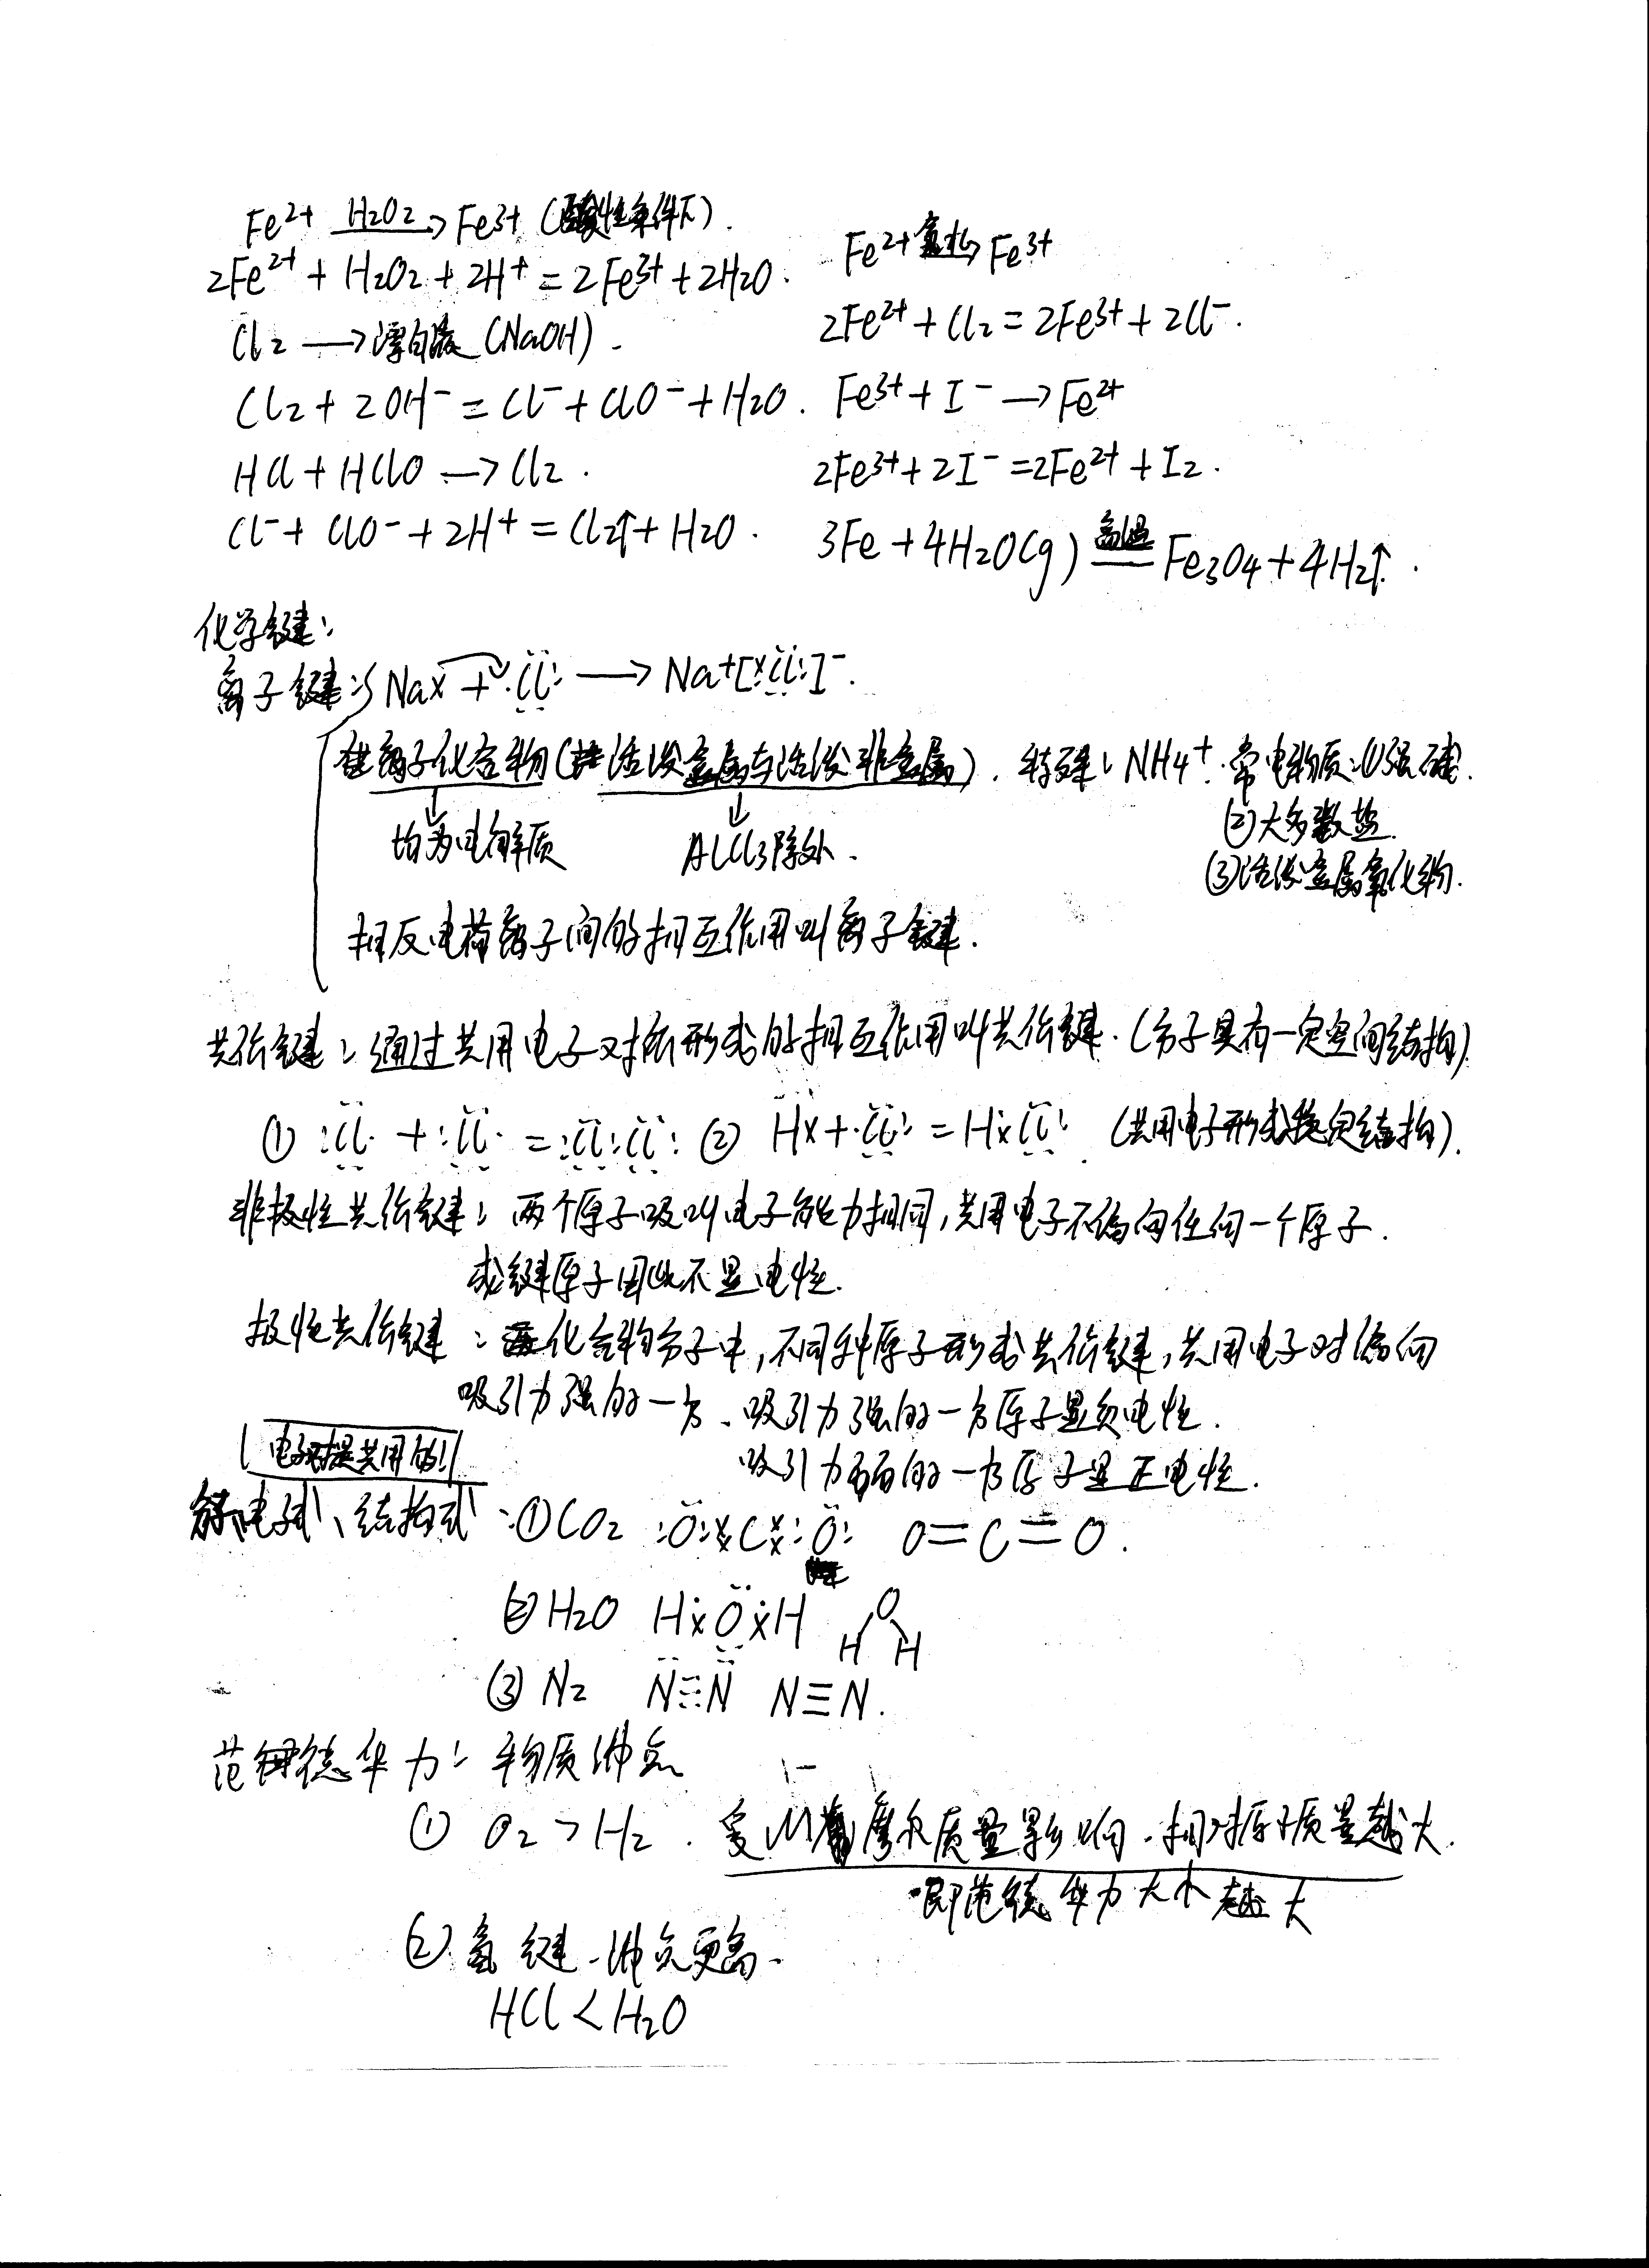 Fe²⁺ —H₂O₂→ Fe³⁺ (酸性条件下).
2Fe²⁺ + H₂O₂ + 2H⁺ = 2Fe³⁺ + 2H₂O.
Cl₂ → 漂白液 (NaOH).
Cl₂ + 2OH⁻ = Cl⁻ + ClO⁻ + H₂O.
HCl + HClO → Cl₂.
Cl⁻ + ClO⁻ + 2H⁺ = Cl₂↑ + H₂O.
Fe²⁺ 氯化→ Fe³⁺
2Fe²⁺ + Cl₂ = 2Fe³⁺ + 2Cl⁻.
Fe³⁺ + I⁻ → Fe²⁺
2Fe³⁺ + 2I⁻ = 2Fe²⁺ + I₂.
3Fe + 4H₂O(g) 高温 Fe₃O₄ + 4H₂↑.
化学键:
离子键: Na× + ·Cl: → Na⁺[×Cl:]⁻.
离子化合物(活泼金属与活泼非金属). 特殊: NH₄⁺. 常电物质: (1)强碱.
(2)大多数盐.
(3)活泼金属氧化物.
均为电解质 AlCl₃除外.
相反电荷离子间的相互作用叫离子键.
共价键: 通过共用电子对所形成的相互作用叫共价键. (分子具有一定空间结构)
① :Cl· + :Cl· = :Cl:Cl: ② H× + ·Cl: = H×Cl: (共用电子形成稳定结构).
非极性共价键: 两个原子吸叫电子能力相同, 共用电子不偏向任何一个原子.
成键原子因此不显电性.
极性共价键: 化合物分子中, 不同种原子形成共价键, 共用电子对偏向
吸引力强的一方. 吸引力强的一方原子显负电性.
吸引力弱的一方原子显正电性.
电子对是共用的!
电子式、结构式: ①CO₂ :O:×C×:O: O=C=O.
② H₂O H×O×H O H H
③ N₂ N≡N N≡N.
范德华力: 物质沸点
① O₂ > H₂. 受M摩尔质量影响. 相对原子质量越大.
即范德华力大小越大
② 氢键. 沸点更高.
HCl < H₂O